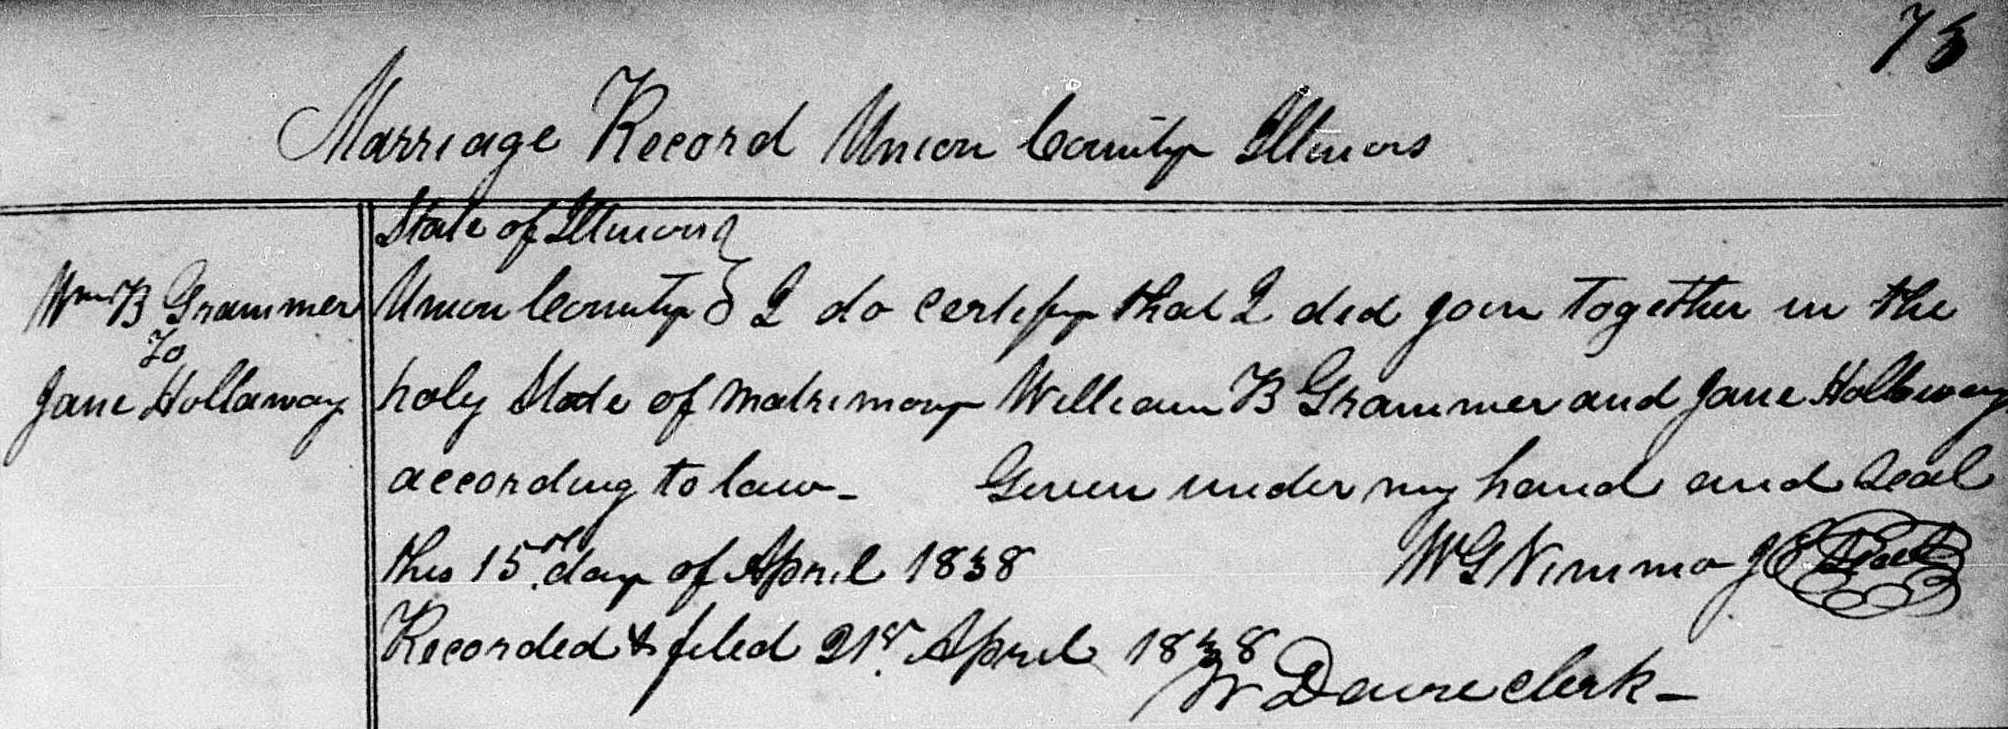 73
Marriage Record Union County Illinois
State of Illinois
Wm B Grammer
To
Jane Hollaway
Union County } I do certify that I did join together in the
holy State of matrimony William B Grammer and Jane Holloway
according to law - Given under my hand and Seal
this 15th day of April 1838 W G Nimmo J P Seal
Recorded & filed 21st April 1838
W Davie clerk -